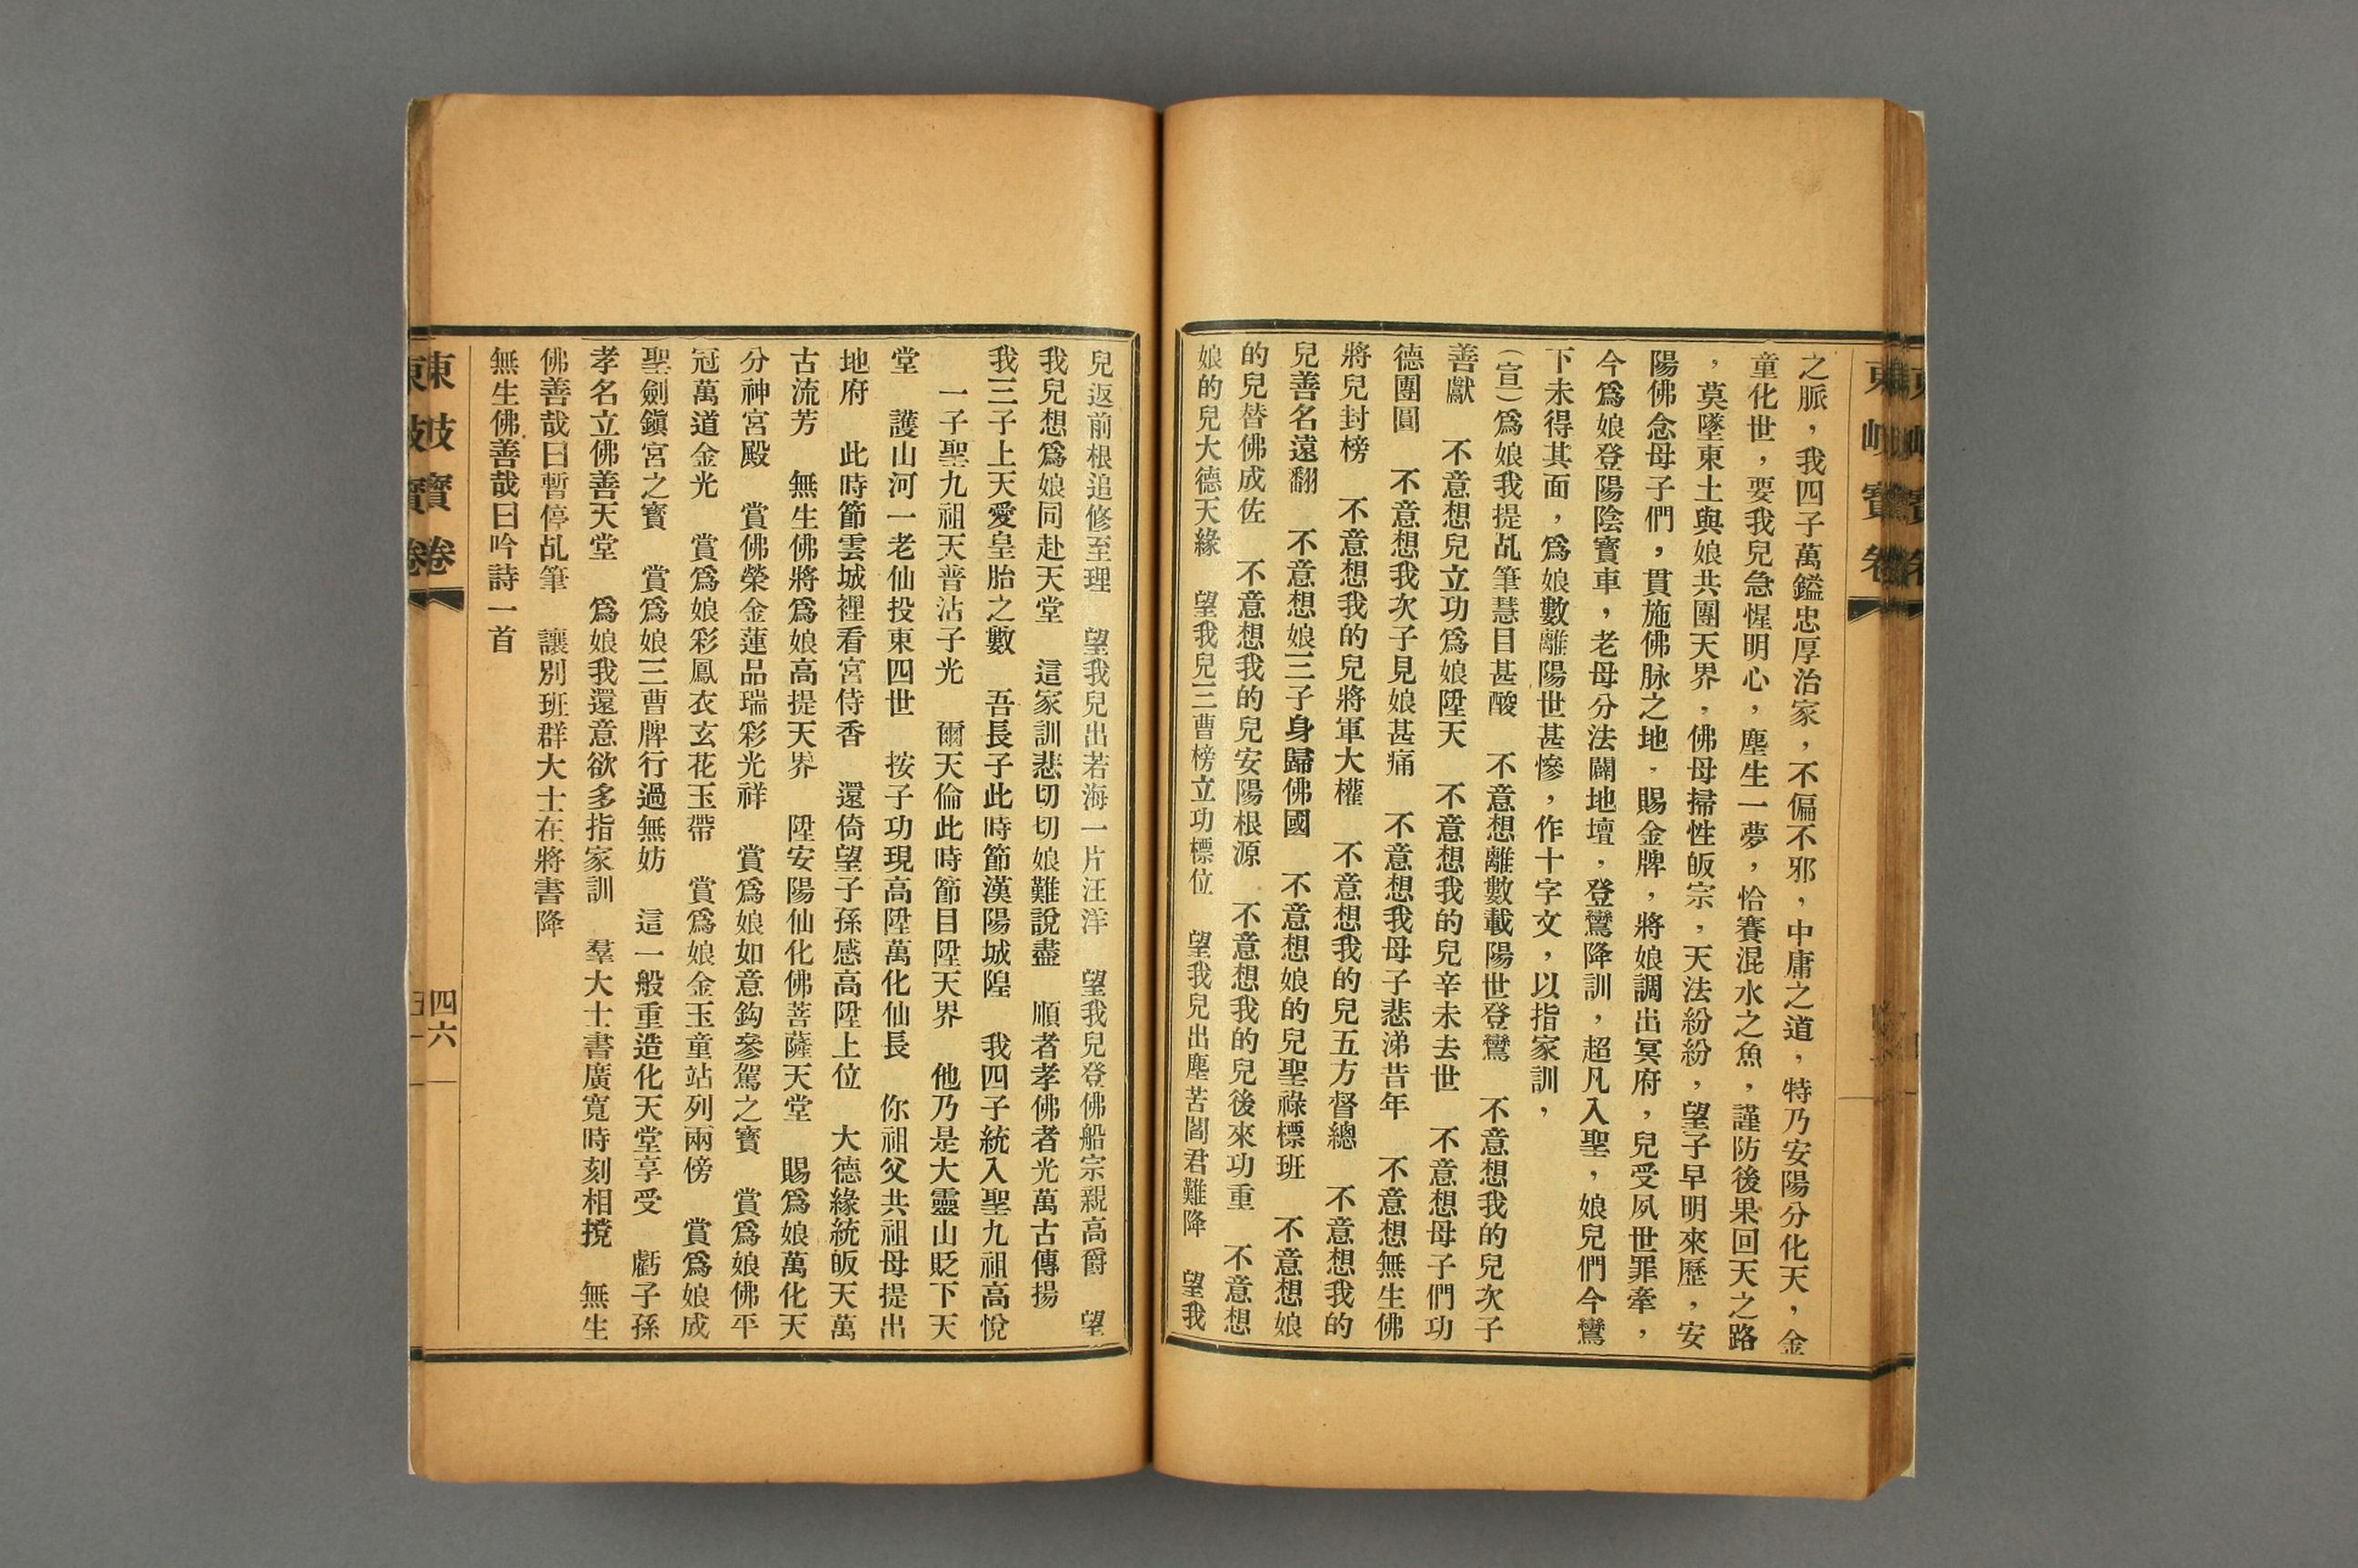 之脈，我四子萬鎰忠厚治家，不偏不邪，中庸之道，特乃安陽分化天，金
童化世，要我兒急惺明心，塵生一夢，恰賽混水之魚，謹防後果回天之路
，莫墜東土與娘共團天界，佛母掃性皈宗，天法紛紛，望子早明來歷，安
陽佛念母子們，貫施佛脉之地，賜金牌，將娘調出冥府，兒受夙世罪牽，
今爲娘登陽陰寶車，老母分法闢地壇，登鸞降訓，超凡入聖，娘兒們今鸞
下未得其面，爲娘數離陽世甚慘，作十字文，以指家訓，
（宣）爲娘我提乩筆慧目甚酸　不意想離數載陽世登鸞　不意想我的兒次子
善獻　不意想兒立功爲娘陞天　不意想我的兒辛未去世　不意想母子們功
德團圓　不意想我次子見娘甚痛　不意想我母子悲涕昔年　不意想無生佛
將兒封榜　不意想我的兒將軍大權　不意想我的兒五方督總　不意想我的
兒善名遠翻　不意想娘三子身歸佛國　不意想娘的兒聖祿標班　不意想娘
的兒替佛成佐　不意想我的兒安陽根源　不意想我的兒後來功重　不意想
娘的兒大德天緣　望我兒三曹榜立功標位　望我兒出塵苦閻君難降　望我
兒返前根追修至理　望我兒出若海一片汪洋　望我兒登佛船宗親高爵　望
我兒想爲娘同赴天堂　這家訓悲切切娘難說盡　順者孝佛者光萬古傳揚
我三子上天愛皇胎之數　吾長子此時節漢陽城隍　我四子統入聖九祖高悅
一子聖九祖天普沾子光　爾天倫此時節目陞天界　他乃是大靈山貶下天
堂　護山河一老仙投東四世　按子功現高陞萬化仙長　你祖父共祖母提出
地府　此時節雲城裡看宮侍香　還倚望子孫感高陞上位　大德緣統皈天萬
古流芳　無生佛將爲娘高提天界　陞安陽仙化佛菩薩天堂　賜爲娘萬化天
分神宮殿　賞佛榮金蓮品瑞彩光祥　賞爲娘如意鈎參駕之寳　賞爲娘佛平
冠萬道金光　賞爲娘彩鳳衣玄花玉帶　賞爲娘金玉童站列兩傍　賞爲娘成
聖劍鎮宮之寳　賞爲娘三曹牌行過無妨　這一般重造化天堂享受　虧子孫
孝名立佛善天堂　爲娘我還意欲多指家訓　羣大士書廣寬時刻相撓　無生
佛善哉曰暫停乩筆　讓別班群大士在將書降
無生佛善哉曰吟詩一首
東岐寳卷
四六